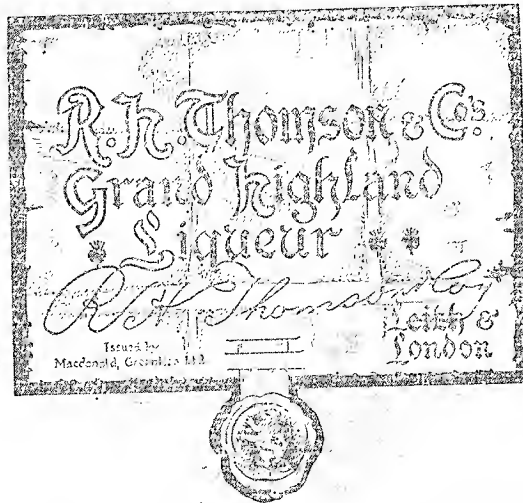 R. H. Thomson & Co's.
Grand Highland
Liqueur
R H Thomson and Coy
Leith &
London
Issued by
Macdonald, Greenlees Ltd.